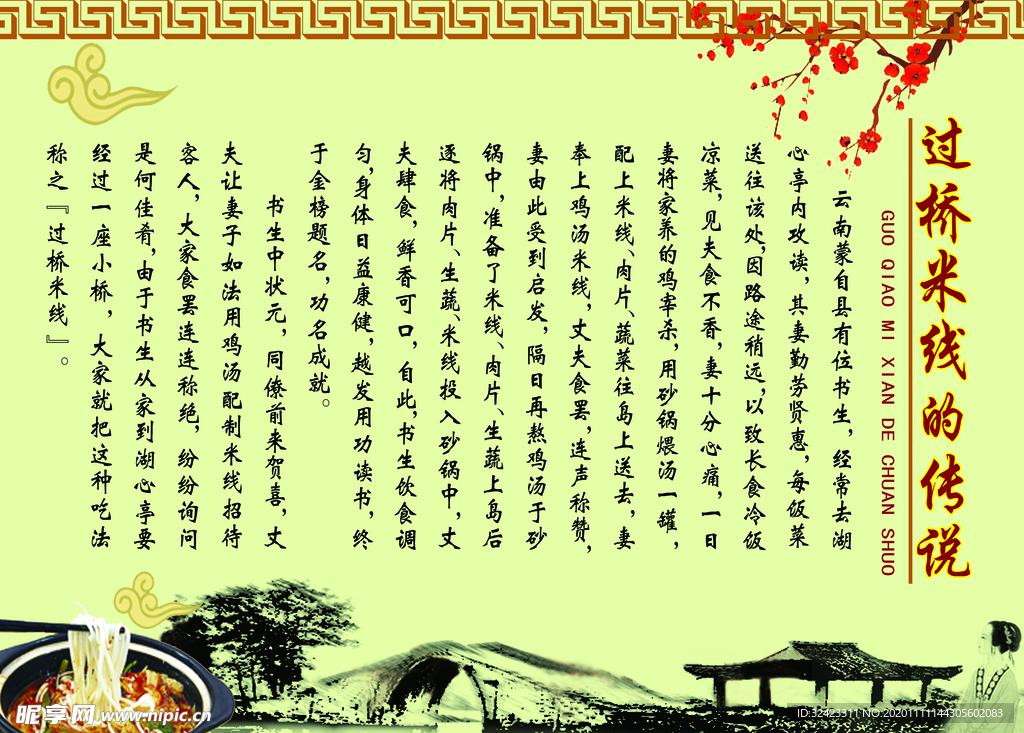 过桥米线的传说
GUO QIAO MI XIAN DE CHUAN SHUO
云南蒙自县有位书生，经常去湖
心亭内攻读，其妻勤劳贤惠，每饭菜
送往该处，因路途稍远，以致长食冷饭
凉菜，见夫食不香，妻十分心痛，一日
妻将家养的鸡宰杀，用砂锅煨汤一罐，
配上米线、肉片、蔬菜往岛上送去，妻
奉上鸡汤米线，丈夫食罢，连声称赞，
妻由此受到启发，隔日再熬鸡汤于砂
锅中，准备了米线、肉片、生蔬上岛后
逐将肉片、生蔬、米线投入砂锅中，丈
夫肆食，鲜香可口，自此，书生饮食调
匀，身体日益康健，越发用功读书，终
于金榜题名，功名成就。
书生中状元，同僚前来贺喜，丈
夫让妻子如法用鸡汤配制米线招待
客人，大家食罢连连称绝，纷纷询问
是何佳肴，由于书生从家到湖心亭要
经过一座小桥，大家就把这种吃法
称之『过桥米线』。
昵享网 www.nipic.cn
ID:32423311 NO:20201111144305602083